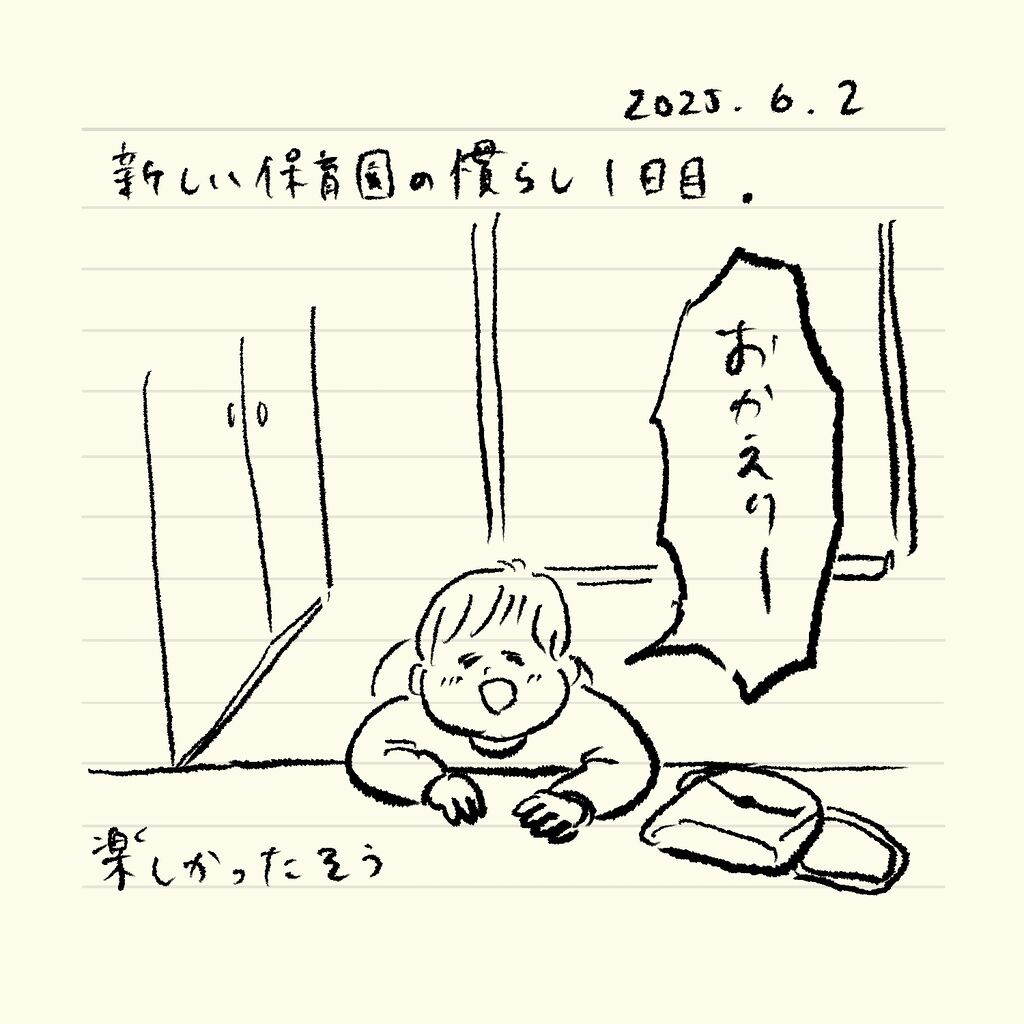 2025.6.2
新しい保育園の慣らし1日目.
おかえりー
楽しかったそう